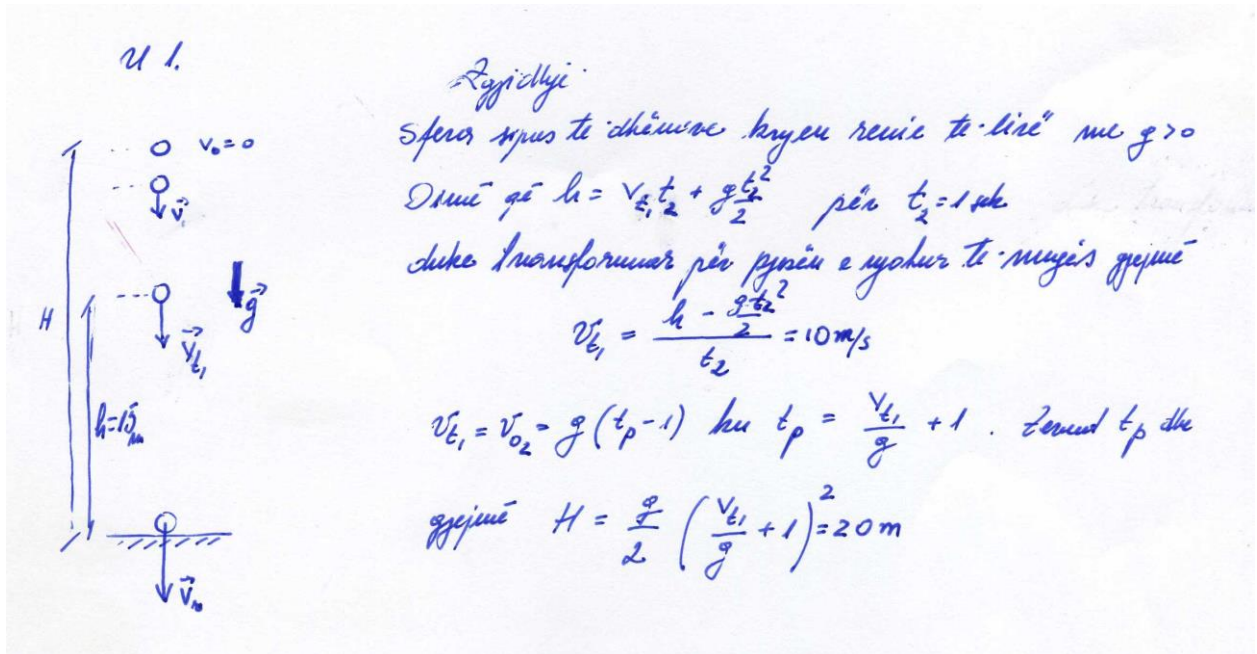 U 1.
Zgjidhje
Sfera sipas te dhënave kryen renie te lirë me g>0
v₀ = 0
Dimë që h = v_{t₁} t₂ + g t₂²/2 për t₂ = 1 sek
v⃗₁
duke transformuar për pjesën e njohur te rrugës gjejmë
g⃗
H
v_{t₁} = (h - g t₂²/2) / t₂ = 10 m/s
v⃗_{t₁}
h = 15 m
v_{t₁} = v_{o₂} = g (t_p - 1) ku t_p = v_{t₁}/g + 1 . t_p dhe
gjejmë H = g/2 (v_{t₁}/g + 1)² = 20 m